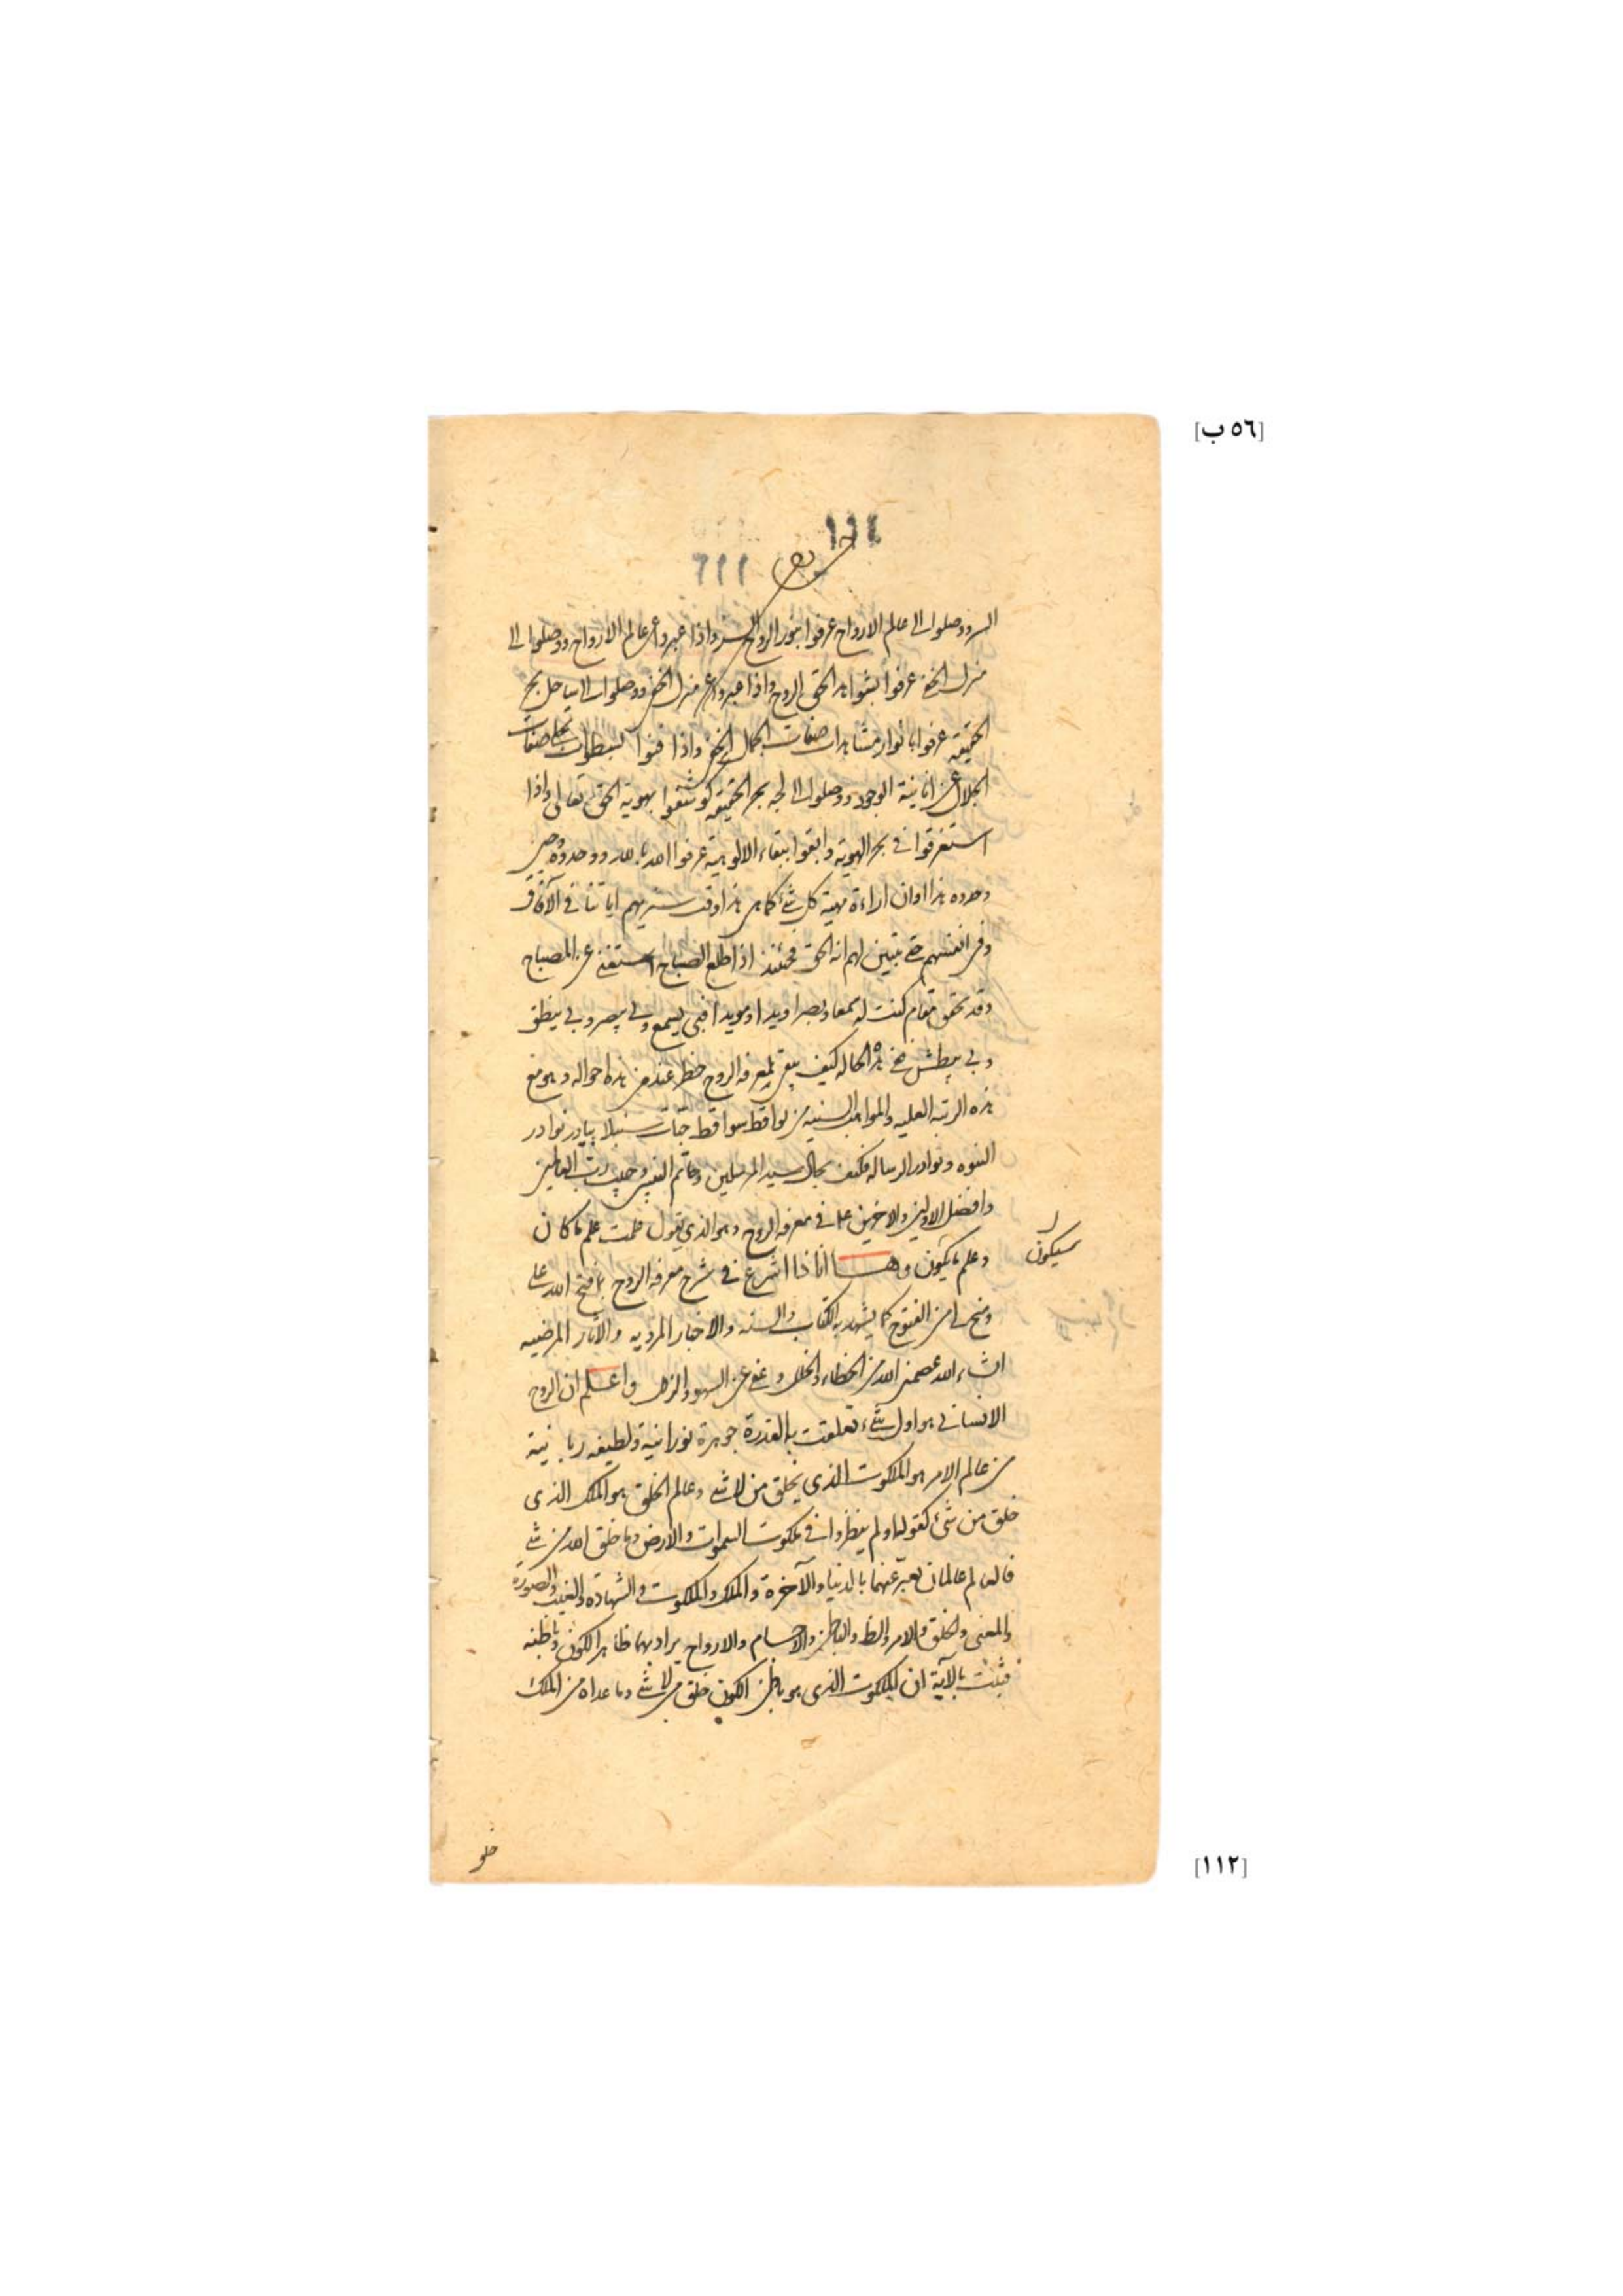 [٥٦ ب]
١١٤
٦١١
السر ووصلوا الى عالم الارواح عرفوا بنور الروح السر واذا عبروا عن عالم الارواح ووصلوا الى
منزل الخفى عرفوا بشواهد الحق الروح واذا عبروا عن منزل الخفى ووصلوا الى ساحل بحر
الحقيقه عرفوا بانوار مشاهدات صفات الجمال الخفى واذا فنوا بسطوات تجلى صفات
الجلال عن انانية الوجود ووصلوا الى لجه بحر الحقيقه كوشفوا بهوية الحق تعالى واذا
استغرقوا فى بحر الهوية وابقوا ببقاء الالوهية عرفوا الله بالله ووحدوه
وحدوه هذا اوان اراءة مهية كل شئ كما هى هذا وقت سنريهم اياتنا فى الآفاق
وفى انفسهم حتى يتبين لهم انه الحق فحينئذ اذا طلع الصباح استغنى عن المصباح
وقد تحقق مقام كنت له سمعا وبصرا ويدا ومويدا فبى يسمع وبى يبصر وبى ينطق
وبى يبطش ففى هذه الحاله كيف يبقى لمعرفه الروح خطر عند من هذه احواله وهو مع
هذه الرتبه العليه والمواهب السنيه من لواقط سواقط حبات سنبلا بيادر نوادر
النبوه وبوادر الرساله فكيف بحال سيد المرسلين وخاتم النبيين وحبيب رب العالمين
وافضل الاولين والاخرين علما فى معرفه الروح وهو الذى يقول علمت علم ما كان
وعلم ما يكون وها انا ذا اشرع فى شرح معرفه الروح بما فتح الله على
سيكون
ومنح لى من الفتوح كما يشهد به الكتاب والسنه والاخبار المرويه والآثار المرضيه
انشاء الله عصمنى الله من الخطاء والخلل وعفى عن السهو والزلل واعلم ان الروح
الانسانى هو اول شئ تعلقت به القدرة جوهرة نورانية ولطيفه ربانية
من عالم الامر هو الملكوت الذى يخلق من لا شئ وعالم الخلق هو الملك الذى
خلق من شئ كقوله اولم ينظروا فى ملكوت السموات والارض وما خلق الله من شئ
فالعالم عالمان يعبر عنهما بالدنيا والآخرة والملك والملكوت والشهادة والغيب والصورة
والمعنى والخلق والامر والظ والباطن والاجسام والارواح يراد بهما ظاهر الكون وباطنه
فثبت بالآية ان الملكوت الذى هو باطن الكون خلق من لا شئ وما عداه من الملك
خلق
[١١٢]